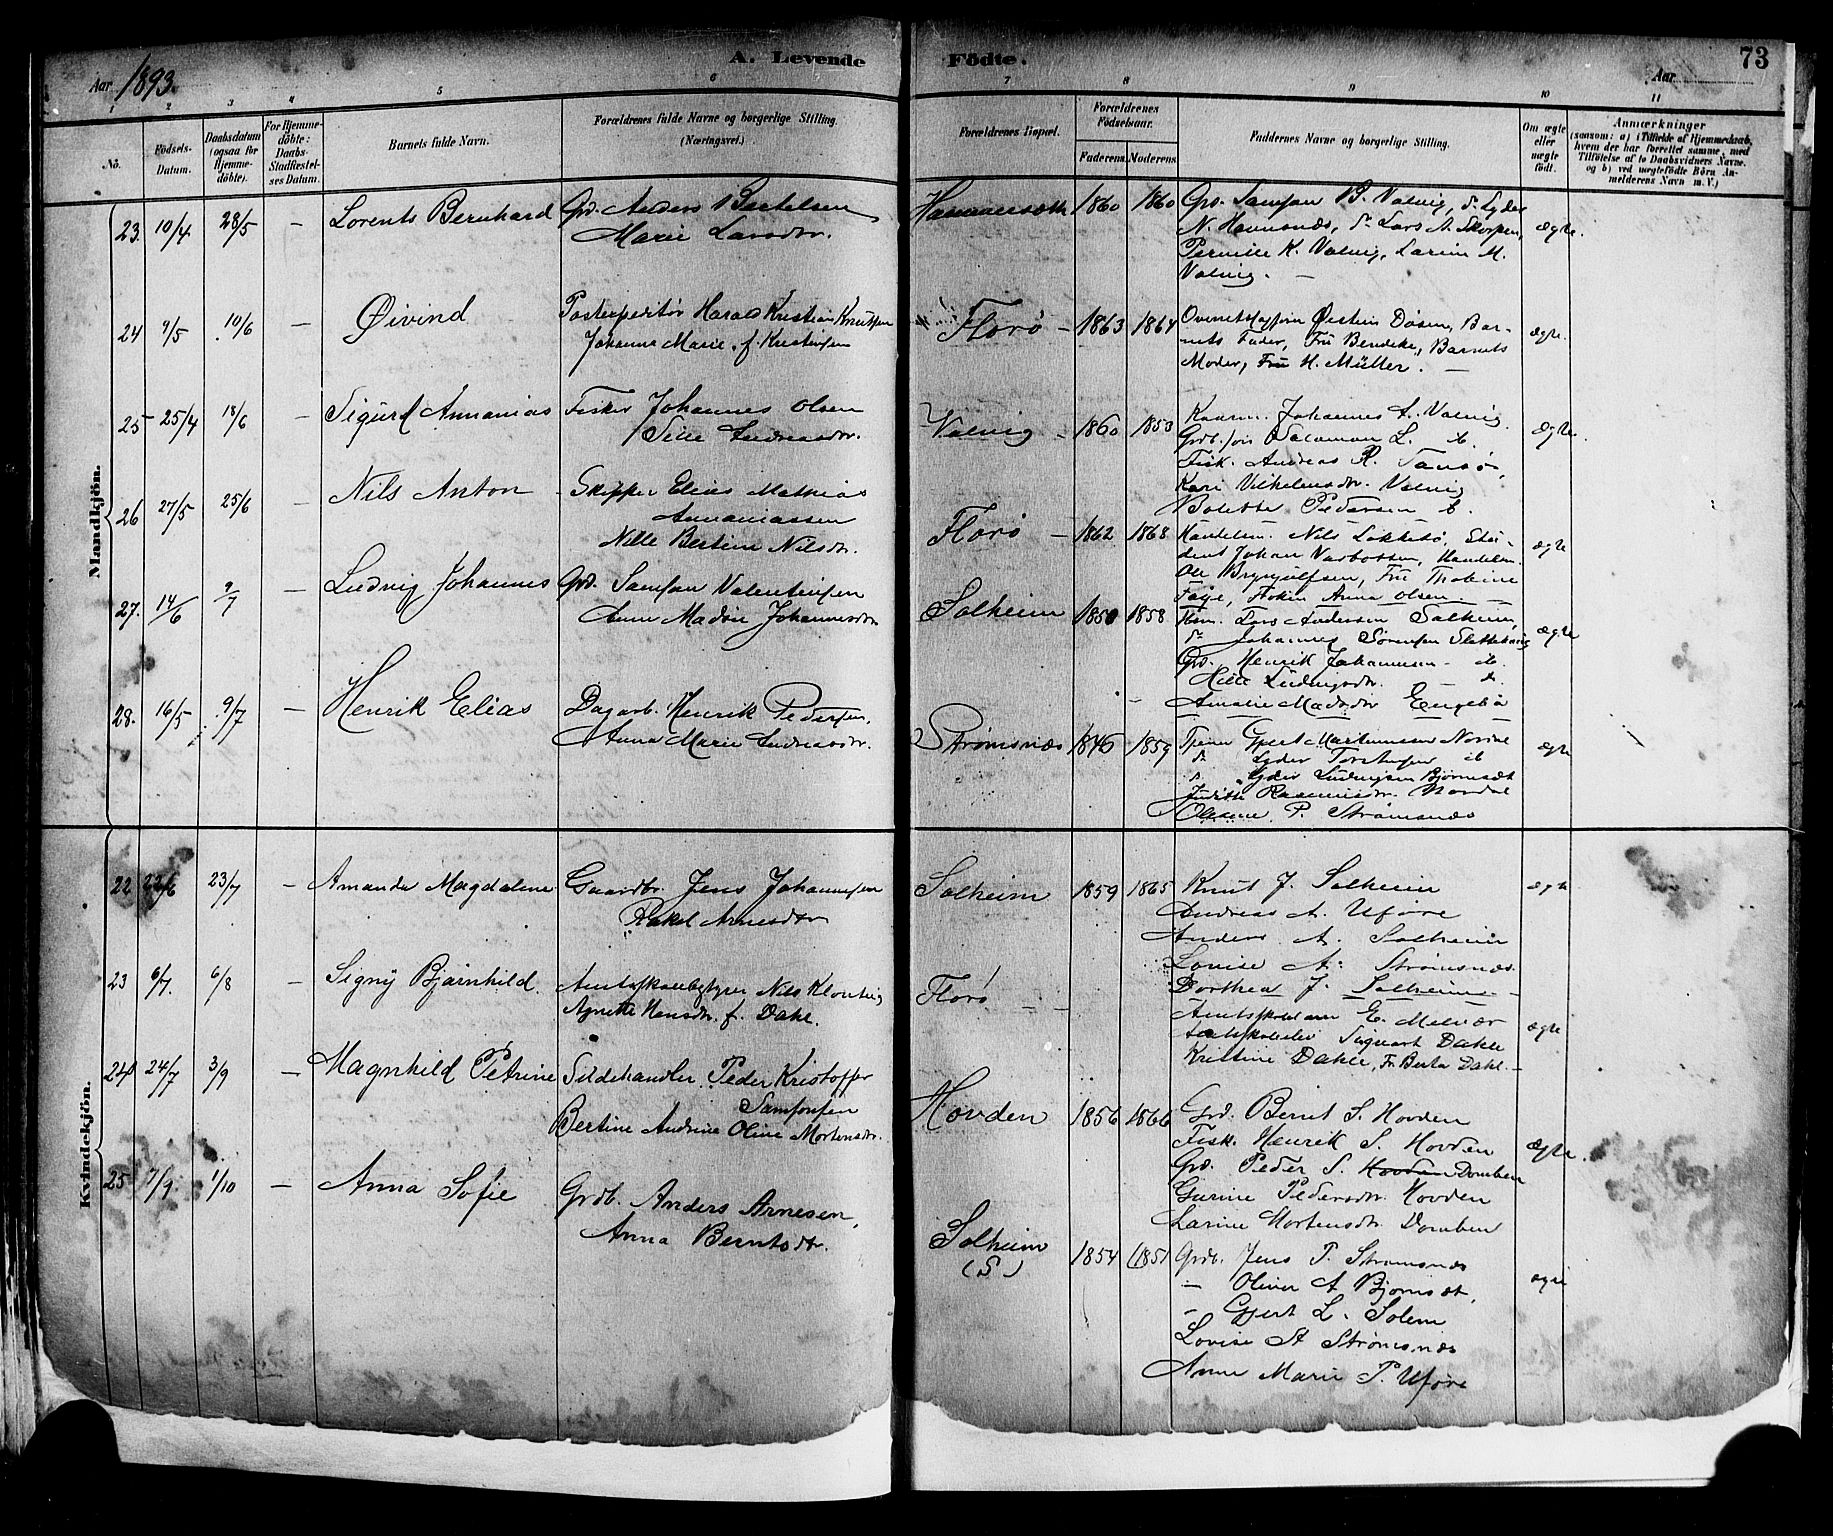 Aar 1893.
A. Levende
Födte.
Aar
73
1 2 3 4 5 6 7 8 9 10 11
No.
Födsels-Datum.
Daabsdatum (ogsaa för Hjemme-döbte).
For Hjemme-döbte: Daabs-Stadfæstel-ses Datum.
Barnets fulde Navn.
Forældrenes fulde Navne og borgerlige Stilling. (Næringsvei.)
Forældrenes Bopæl.
Forældrenes Födselsaar.
Faderens. Moderens.
Faddernes Navne og borgerlige Stilling.
Om ægte eller uægte födt.
Anmærkninger
(saasom: a) i Tilfælde af Hjemmedaab,
hvem der har forrettet samme, med
Tilföielse af to Daabsvidners Navne,
og b) ved uægtefödte Börn An-
melderens Navn m. V.)
Mandkjön.
23. 10/4 28/5 — Lorents Bernhard Grd. Anders Bertelsen
Marie Larsdtr.
1860 1860 Grd. Samson B. Valvig, do Lyder
N. Havnnæs, do Lars A. Skorpen,
Pernille K. Valvig, Larine M.
Valvig. —
ægte.
24 9/5 10/6 — Øivind Postexpeditør Harald Kristian Knutsen
Johanna Marie, f. Kristensen
Florø — 1863 1864
Døsen, Bar-
nets Fader, Fru Bendeke, Barnets
Moder, Fru H. Müller. —
ægte.
25 25/4 18/6 — Sigurd Annanias Fisker Johannes Olsen
Sille Andreasdtr.
Valvig — 1860 1853 Johannes A. Valvig
Salamon L. ib.
Fisk. Andreas R. Tansø,
Kari Vilhelmsdtr. Valvig
Bolette Pedersen ib.
ægte.
26 27/5 25/6 — Nils Anton Skipper Elias Mathias
Annaniassen
Nille Bertine Nilsdtr.
Florø — 1862 1868 Handelsm. Nils Løkkebø, Stu-
dent Johan Vartossen, Handelsm.
Ole Brynjulfsen, Fru Thobine
Fage, Anna Olsen. —
ægte
27. 14/6 9/7 — Ludvig Johannes Grd. Samson Valentinsen
Anne Madsi Johannesdtr
Solheim 1850 1858 Lars Andersen Solheim,
do Johannes Sørensen
Grd. Henrik Johannesen — ib.
Hille Ludvigsdtr. — do.
Amalie Madsdtr Engebø
ægte
28. 16/5 9/7 — Henrik Elias Dagarb. Henrik Pedersen,
Anna Marie Andreasdtr.
Strømsnæs 1846 1859 Tjener Gjert Martinussen Nordal
do Lyder Torstensen ib
do Lyder Ludvigsen Bjørnsæt
Judithe Rasmusdtr. Nordal
Olesine P. Strømsnæs
ægte
Kvindekjön.
22 22/6 23/7 — Amanda Magdalene Gaardbr. Jens Johannesen
Rakel Arnesdtr
Solheim 1859 1865 Knut J. Solheim
Andreas A. Uføre
Anders A. Solheim
Lovise A. Strømsnæs.
Dorthea J. Solheim —
ægte
23 6/7. 6/8 — Signy Bjarnhild. Amtsskolebestyrer Nils Klonteig
Agnethe Hansdtr. f. Dahl.
Florø —
E. Melvær
Sigvart Dahle
Kristine Dahle, Fr. Berta Dahl. —
ægte
24 24/7 3/9 — Magnhild Petrine Sildehandler Peder Kristoffer
Samsonsen
Bertine Andrine Oline Mortensdtr.
Hovden 1856 1866 Grd. Bernt S. Hovden
Fisk. Henrik S. Hovden
Grd. Peder S. Hovden Domben
Gurine Pedersdtr. Hovden
Larine Mortensdtr. Domben
ægte.
25 7/9. 1/10 — Anna Sofie Grdb. Anders Arnesen,
Anna Berntsdtr.
Solheim
(S)
1854 (1851 Grdb. Jens P. Strømsnæs
— Oliver A Bjørnsæt,
— Gjert L. Solem
Lovise A Strømsnæs
Anne Marie P. Uføre
ægte